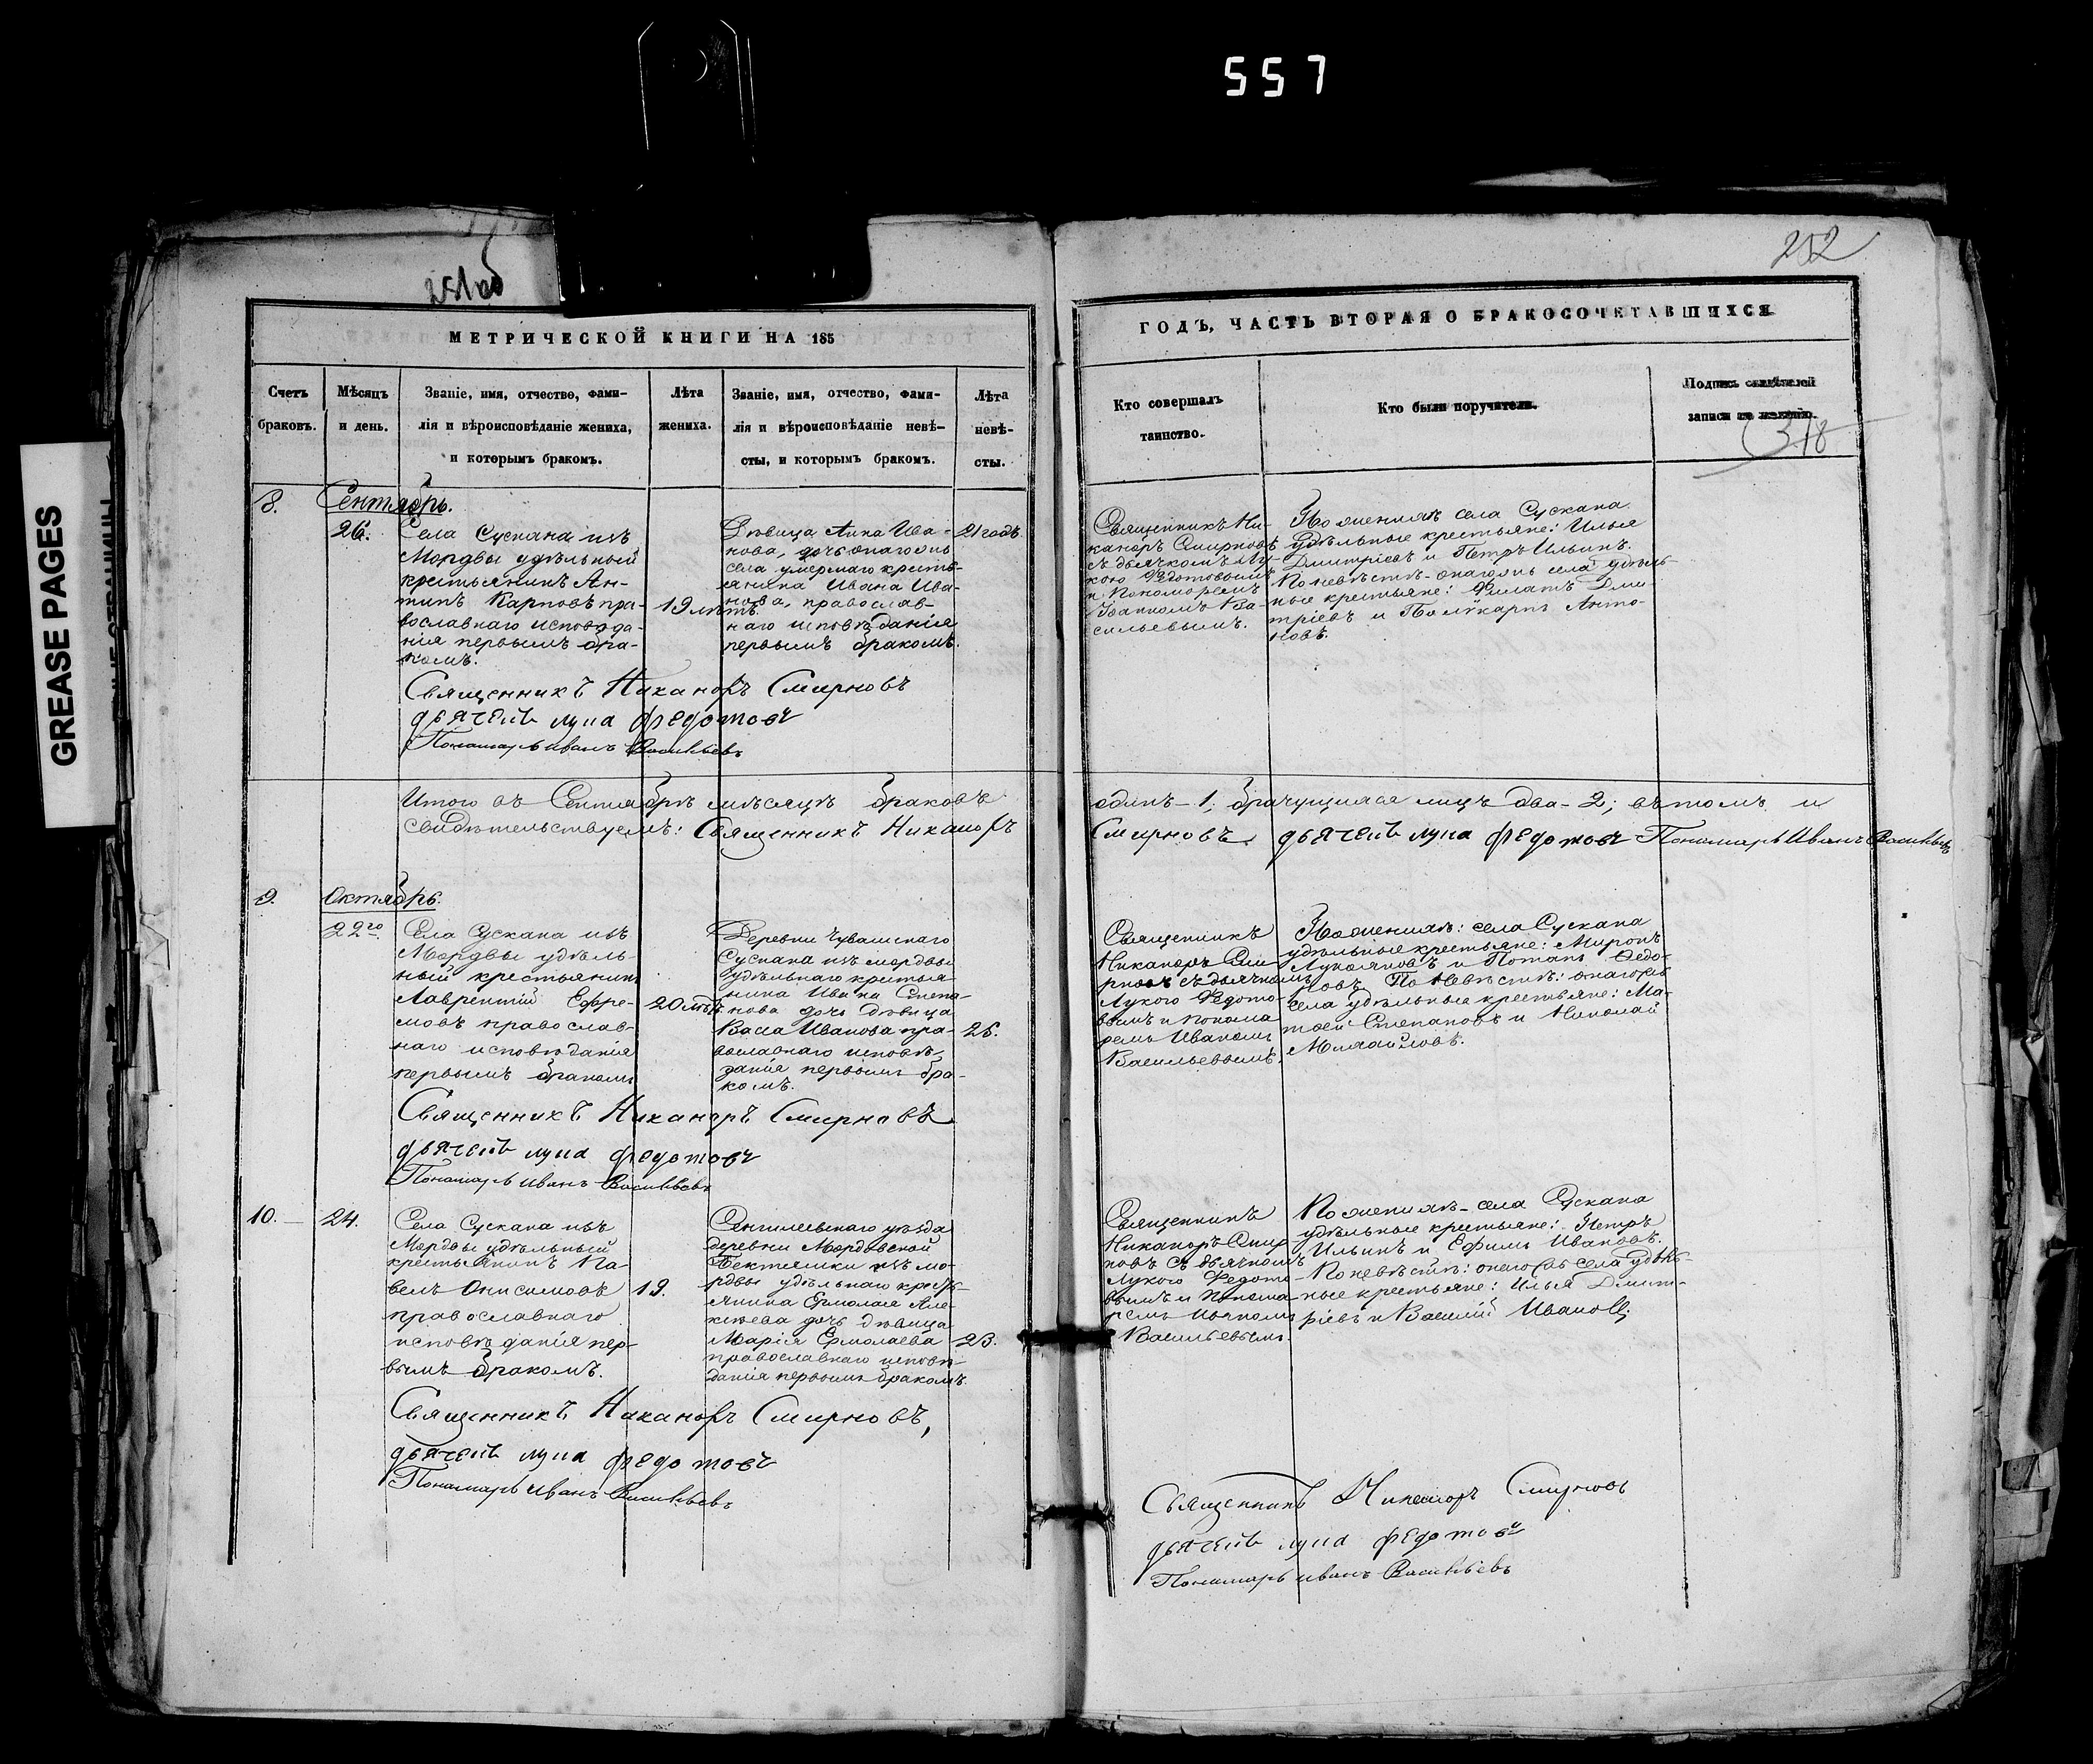 557
GREASE PAGES
251об
252
МЕТРИЧЕСКОЙ КНИГИ НА 185
Счетъ
браковъ.
Мѣсяцъ
и день.
Званіе, имя, отчество, фами-
лія и вѣроисповѣданіе жениха,
и которымъ бракомъ.
Лѣта
жениха.
Званіе, имя, отчество, фами-
лія и вѣроисповѣданіе невѣ-
сты, и которымъ бракомъ.
Лѣта
невѣ-
сты.
8.
Сентябрь.
26.
Села Сускана изъ
Мордвы удѣльный
крестьянинъ Ан-
типъ Карповъ пра-
вославнаго исповѣда-
нія первымъ бра-
комъ.
19 лѣтъ.
Дѣвица Анна Ива-
нова, дочь онагожъ
села умершаго кресть-
янина Ивана Ива-
нова, православ-
наго исповѣданія
первымъ бракомъ.
21 годъ.
Священникъ Никаноръ Смирновъ
дьячекъ лука федотовъ
Пономарь иванъ Васильевъ
Итого въ Сентябрѣ мѣсяцѣ браковъ
свидѣтельствуемъ: Священникъ Никаноръ
9.
Октябрь.
22го
Села Сускана изъ
Мордвы удѣль-
ный крестьянинъ
Лаврентій Ефре-
мовъ православ-
наго исповѣданія
первымъ бракомъ
20 лѣтъ.
Деревни Чувашскаго
Сускана изъ мордвы
удѣльнаго крестья-
нина Ивана Степа-
нова дочь дѣвица
Васса Иванова пра-
вославнаго исповѣ-
данія первымъ бра-
комъ.
25.
Священникъ Никаноръ Смирновъ
дьячекъ лука федотовъ
Пономарь иванъ Васильевъ
10.
24.
Села Сускана изъ
Мордвы удѣльный
крестьянинъ Па-
велъ Онисимовъ
православнаго
исповѣданія пер-
вымъ бракомъ.
19.
Сенгилевскаго уѣзда
деревни Мордовской
Бектяшки изъ мо-
рдвы удѣльнаго кресть-
янина Ермолая Але-
ксѣева дочь дѣвица
Марія Ермолаева
православнаго исповѣ-
данія первымъ бракомъ.
23.
Священникъ Никаноръ Смирновъ,
дьячекъ лука федотовъ
Пономарь иванъ Васильевъ
ГОДЪ, ЧАСТЬ ВТОРАЯ О БРАКОСОЧЕТАВШИХСЯ
Кто совершалъ
таинство.
Кто были поручители.
Подпись свидѣтелей
записи по желанію.
318
Священникъ Ни-
каноръ Смирновъ
съ дьячкомъ Лу-
кою Федотовымъ
и Пономоремъ
Иваномъ Ва-
сильевымъ.
По женихѣ села Сускана
удѣльные крестьяне: Илья
Дмитріевъ и Петръ Ильинъ.
По невѣстѣ - онагожъ села удѣль-
ные крестьяне: Филатъ Дми-
тріевъ и Поликарпъ Анто-
новъ.
одинъ - 1; брачущихся лицъ два - 2; въ томъ и
Смирновъ. дьячекъ лука федотовъ Пономарь Иванъ Васильевъ
Священникъ
Никаноръ Сми-
рновъ съ дьячкомъ
Лукою Федото-
вымъ и понома
ремъ Иваномъ
Васильевымъ.
По женихѣ: села Сускана
удѣльные крестьяне: Миронъ
Лукояновъ и Потапъ Федо-
ровъ. По Невѣстѣ: онагожъ
села удѣльные крестьяне: Ма-
твей Степановъ и Николай
Священникъ
Никаноръ Смир
новъ съ дьячкомъ
Лукою Федото-
вымъ и понома
ремъ Иваномъ
Васильевымъ.
По женихѣ - села Сускана
удѣльные крестьяне: Петръ
Ильинъ и Ефимъ Ивановъ.
По невѣстѣ: онагожъ села удѣль-
ные крестьяне: Илья Дмит-
ріевъ и Василій Ивановъ.
Священникъ Никаноръ Смирновъ
дьячекъ лука федотовъ
Пономарь иванъ Васильевъ